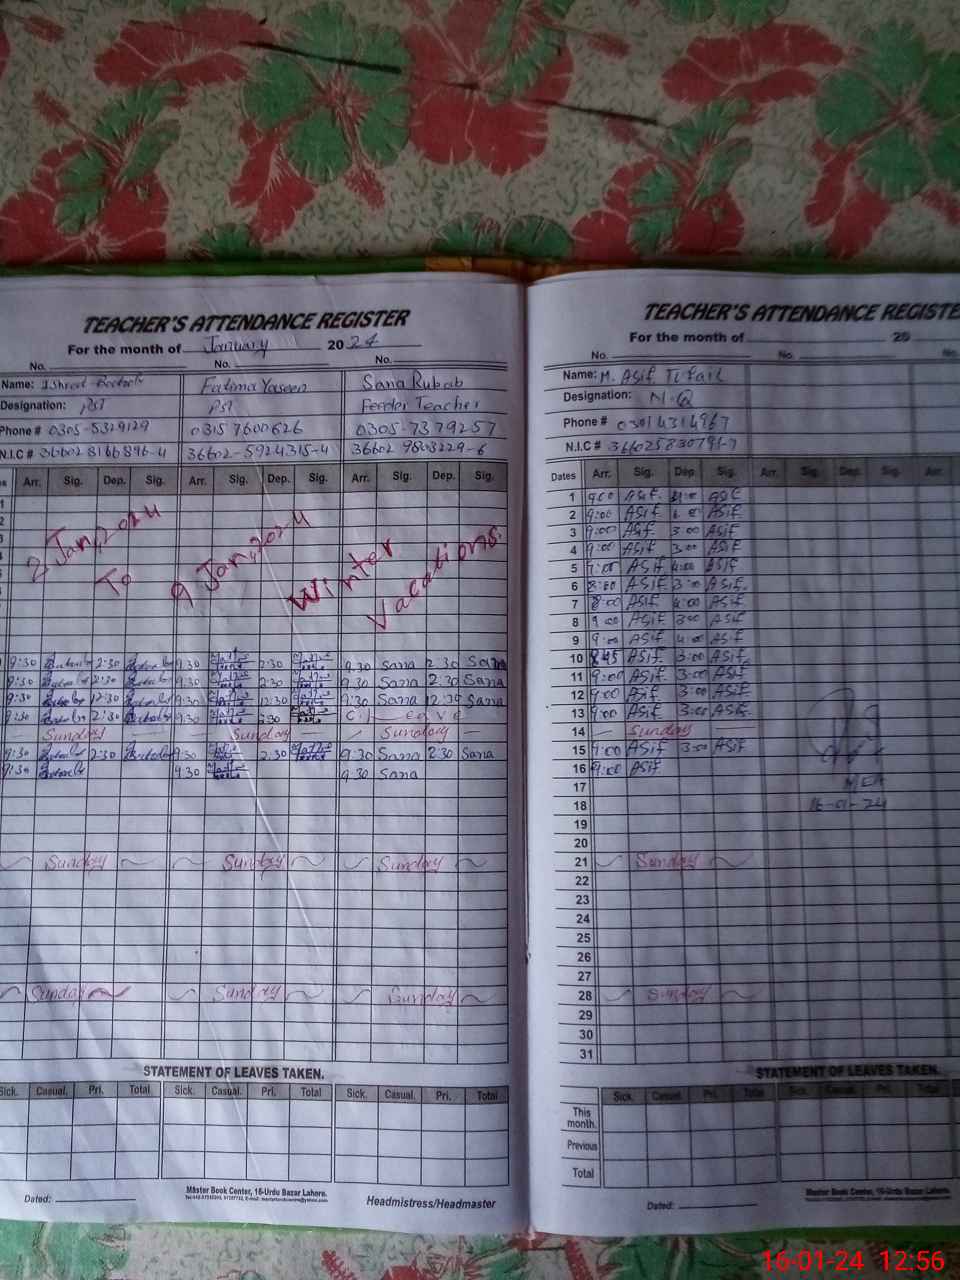 TEACHER'S ATTENDANCE REGISTER
For the month of January 2024
No. No. No.
Name: Fatima Yaseen Sana Rubab
Designation: PST PST Feeder Teacher
Phone # 0305-5329129 0315 7600626 0305-7379257
N.I.C # 36602 8166896-4 36602-5924315-4 36602 9803229-6
Arr. Sig. Dep. Sig. Arr. Sig. Dep. Sig. Arr. Sig. Dep. Sig.
2 Jan, 2024 To 9 Jan, 2024 Winter Vacations.
9:30 2:30 9:30 2:30 9:30 Sana 2:30 Sana
9:30 2:30 9:30 2:30 9:30 Sana 2:30 Sana
9:30 12:30 9:30 12:30 9:30 Sana 12:30 Sana
9:30 2:30 9:30 2:30 C. Leave
Sunday Sunday Sunday
9:30 2:30 9:30 2:30 9:30 Sana 2:30 Sana
9:30 9:30 9:30 Sana
Sunday Sunday Sunday
Sunday Sunday Sunday
STATEMENT OF LEAVES TAKEN.
Sick. Casual. Pri. Total Sick. Casual. Pri. Total Sick. Casual. Pri. Total
Master Book Center, 16-Urdu Bazar Lahore.
Dated: Headmistress/Headmaster
TEACHER'S ATTENDANCE REGISTE
For the month of 20
No. No. No.
Name: M. Asif Tufail
Designation: N.Q
Phone # 03014314967
N.I.C # 3660258307
Dates Arr. Sig. Dep. Sig. Arr. Sig. Dep. Sig. Arr.
1 9:00 Asif. 4:00 Asif
2 9:00 Asif. Asif.
3 9:00 Asif 3:00 Asif
4 9:00 Asif 3:00 Asif
5 Asif 4:00 Asif
6 8:00 Asif 3:00 Asif.
7 8:00 Asif 4:00 Asif
8 9:00 Asif 3:00 Asif
9 9:00 Asif 4:00 Asif
10 8:45 Asif. 3:00 Asif.
11 9:00 Asif. 3:00 Asif
12 9:00 Asif 3:00 Asif
13 9:00 Asif. 3:00 Asif.
14 Sunday
15 9:00 Asif 3:00 Asif
16 9:00 Asif
17 MEA
18 16-01-24
19
20
21 Sunday
22
23
24
25
26
27
28 Sunday
29
30
31
STATEMENT OF LEAVES TAKEN.
Sick. Casual. Pri. Total Sick. Casual. Pri. Total
This month.
Previous
Total
Master Book Center, 16-Urdu Bazar Lahore.
Dated:
16-01-24 12:56